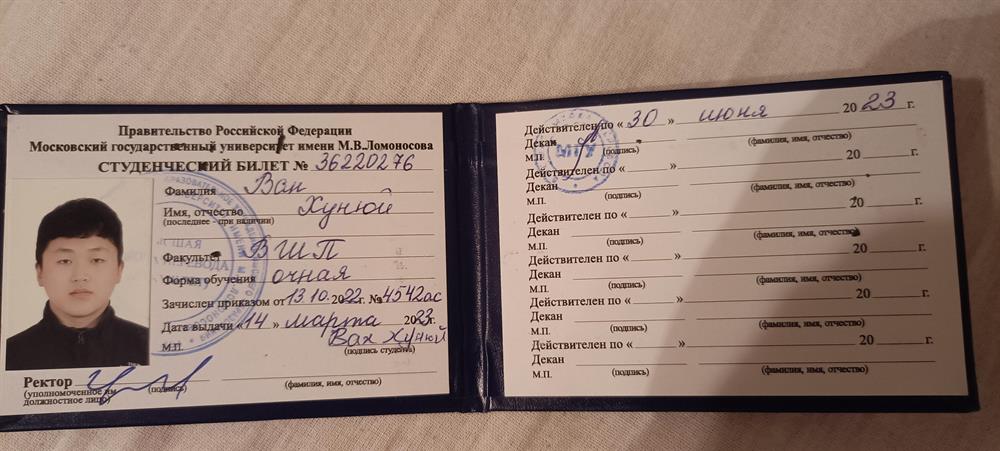 Правительство Российской Федерации
Московский государственный университет имени М.В.Ломоносова
СТУДЕНЧЕСКИЙ БИЛЕТ № 36220276
Фамилия Ван
Имя, отчество Хунюй
(последнее - при наличии)
Факультет ВШП
Форма обучения очная
Зачислен приказом от 13.10.2022г. №4542ас
Дата выдачи «14» марта 2023г.
М.П. Ван Хунюй
(подпись студента)
Ректор
(уполномоченное им должностное лицо)
(подпись) (фамилия, имя, отчество)
Действителен по « 30 » июня 20 23 г.
Декан
М.П. (подпись) (фамилия, имя, отчество)
МГУ
Действителен по « » 20 г.
Декан
М.П. (подпись) (фамилия, имя, отчество)
Действителен по « » 20 г.
Декан
М.П. (подпись) (фамилия, имя, отчество)
Действителен по « » 20 г.
Декан
М.П. (подпись) (фамилия, имя, отчество)
Действителен по « » 20 г.
Декан
М.П. (подпись) (фамилия, имя, отчество)
Действителен по « » 20 г.
Декан
М.П. (подпись) (фамилия, имя, отчество)